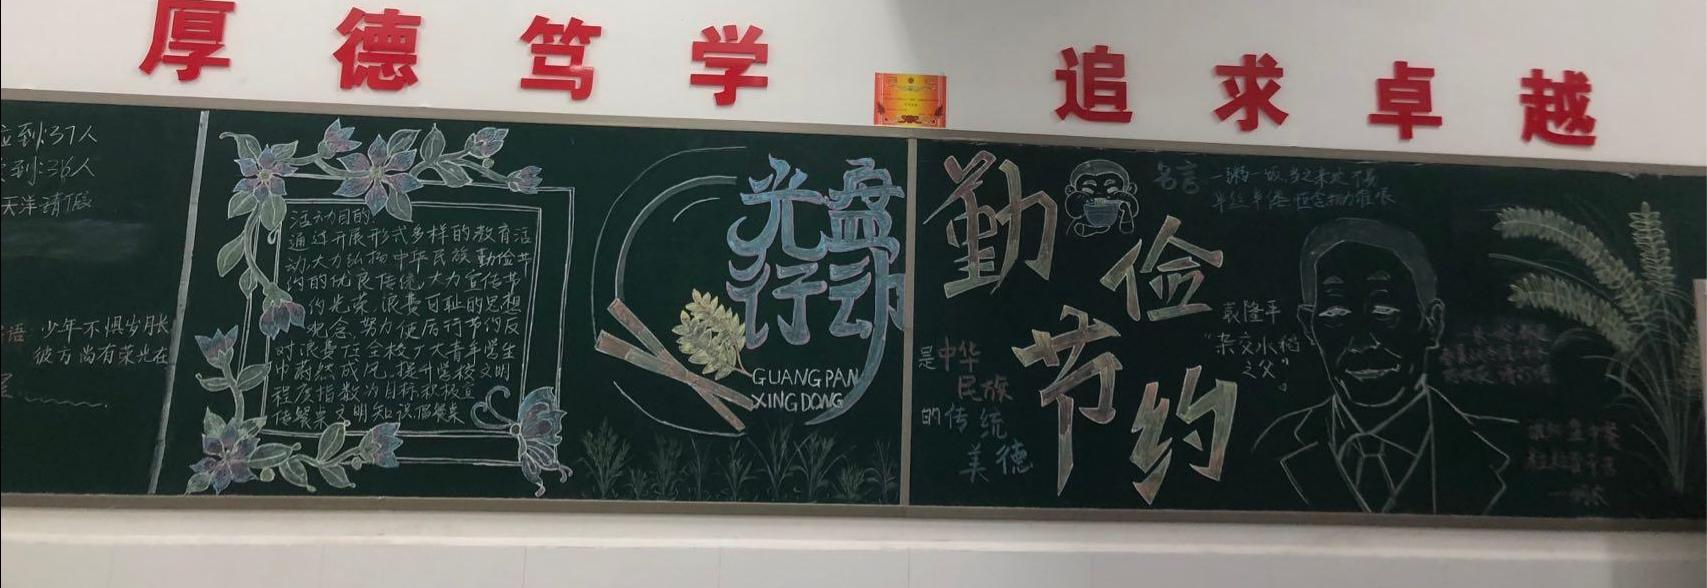 厚德笃学
追求卓越
应到:37人
到:36人
天洋请假
语:少年不惧岁月长
彼方尚有荣光在
活动目的:
通过开展形式多样的教育活
动,大力弘扬中华民族勤俭节
约的优良传统,大力宣传节
约光荣、浪费可耻的思想
观念,努力使厉行节约反
对浪费在全校广大青年学生
中蔚然成风,提升学校文明
程度指数为目标积极宣
传餐桌文明知识倡餐桌
光盘
行动
GUANGPAN
XINGDONG
勤俭
节约
是中华
民族
的传统
美德
名言
一粥一饭,当之来处不易
半丝半缕 恒念物力维艰
袁隆平
"杂交水稻
之父"